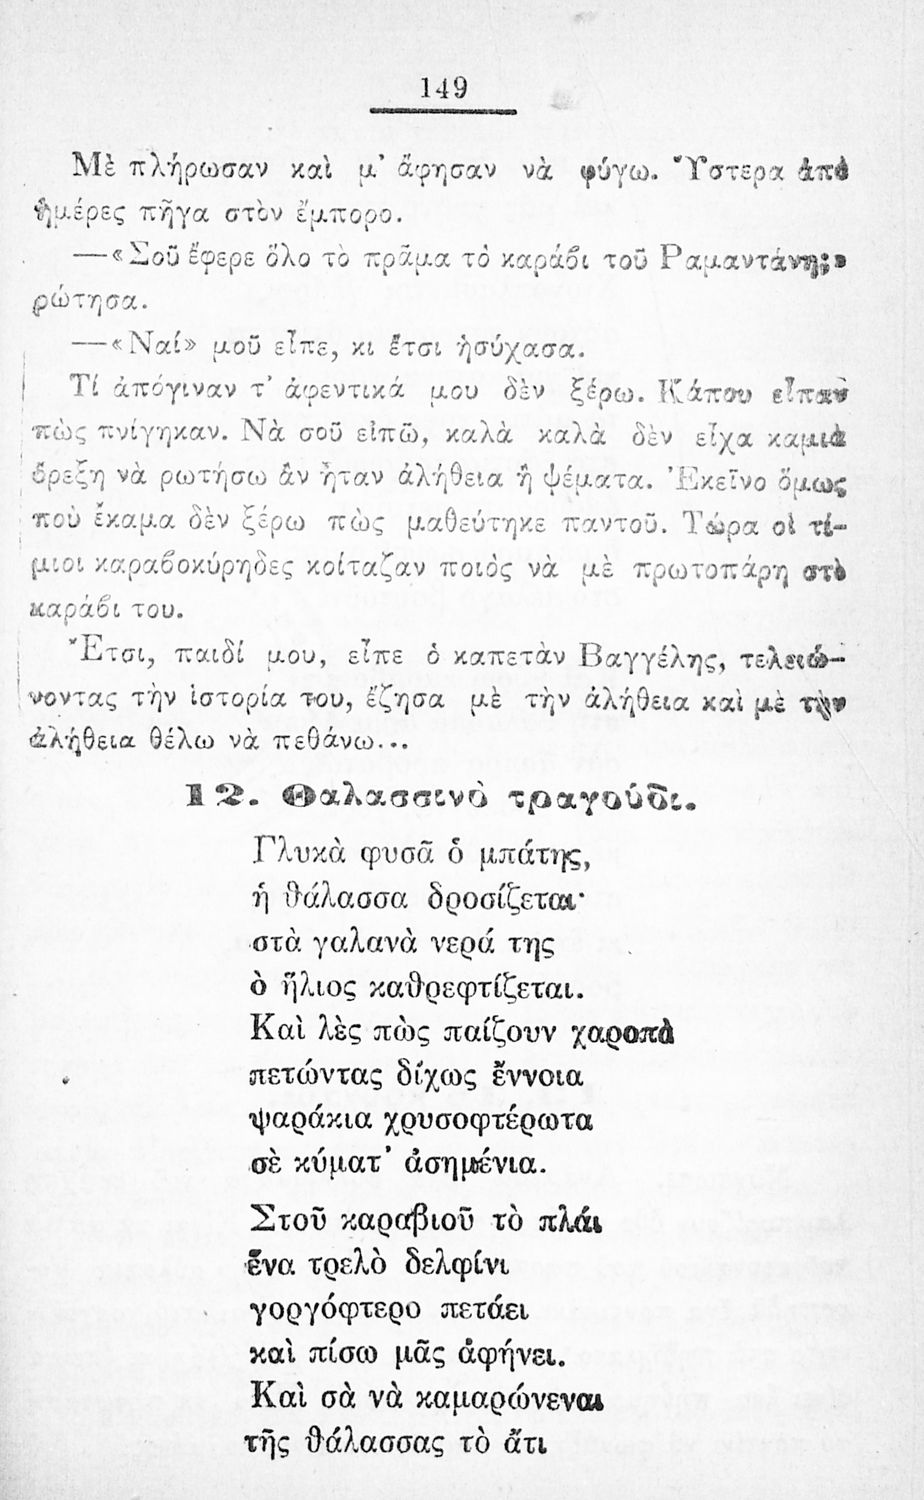 149
Μὲ πλήρωσαν καὶ μ᾿ ἄφησαν νὰ φύγω. Ὕστερα ἀπὸ
ἡμέρες πῆγα στὸν ἔμπορο.
—«Σοῦ ἔφερε ὅλο τὸ πρᾶμα τὸ καράβι τοῦ Ραμαντάνη;»
ρώτησα.
—«Ναί» μοῦ εἶπε, κι ἔτσι ἡσύχασα.
Τί ἀπόγιναν τ᾿ ἀφεντικά μου δὲν ξέρω. Κάπου εἶπαν
πὼς πνίγηκαν. Νὰ σοῦ εἰπῶ, καλὰ καλὰ δὲν εἶχα καμιὰ
ὄρεξη νὰ ρωτήσω ἂν ἦταν ἀλήθεια ἢ ψέματα. Ἐκεῖνο ὅμως
ποὺ ἔκαμα δὲν ξέρω πὼς μαθεύτηκε παντοῦ. Τώρα οἱ τί-
μιοι καραβοκύρηδες κοίταζαν ποιὸς νὰ μὲ πρωτοπάρη στὸ
καράβι του.
Ἔτσι, παιδί μου, εἶπε ὁ καπετὰν Βαγγέλης, τελειώ-
νοντας τὴν ἱστορία του, ἔζησα μὲ τὴν ἀλήθεια καὶ μὲ τὴν
ἀλήθεια θέλω νὰ πεθάνω...
12. Θαλασσινὸ τραγούδι.
Γλυκὰ φυσᾶ ὁ μπάτης,
ἡ θάλασσα δροσίζεται·
στὰ γαλανὰ νερά της
ὁ ἥλιος καθρεφτίζεται.
Καὶ λὲς πὼς παίζουν χαροπὰ
πετώντας δίχως ἔννοια
ψαράκια χρυσοφτέρωτα
σὲ κύματ᾿ ἀσημένια.
Στοῦ καραβιοῦ τὸ πλάι
ἕνα τρελὸ δελφίνι
γοργόφτερο πετάει
καὶ πίσω μᾶς ἀφήνει.
Καὶ σὰ νὰ καμαρώνεναι
τῆς θάλασσας τὸ ἄτι